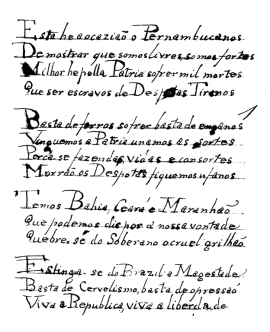 Esta he a ocazião o Pernambucanos
De mostrar que somos livres, somos fortes
Milhor he polla Patria sofrer mil mortes
Que ser escravos de Despotas Tiranos
Basta de ferros sofrer basta de enganos
Vinguemos a Patria unamos as sortes
Percã se fazendas, vidas e consortes
Morrão os Despotas fiquemos ufanos
Temos Bahia, Ceará e Maranhão
Que podemos dispor a nossa vontade
Quebre, se do Soberano o cruel grilhão
Estinga-se do Brazil a Magestade
Basta de Cervelismo, basta de opressão
Viva a Republica, viva a liberda, de